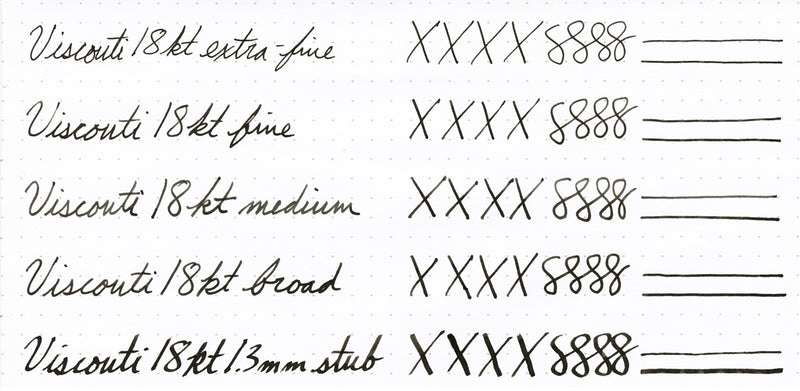 Visconti 18kt extra-fine XXXX 8888
Visconti 18kt fine XXXX 8888
Visconti 18kt medium XXXX 8888
Visconti 18kt broad XXXX 8888
Visconti 18kt 1.3mm stub XXXX 8888